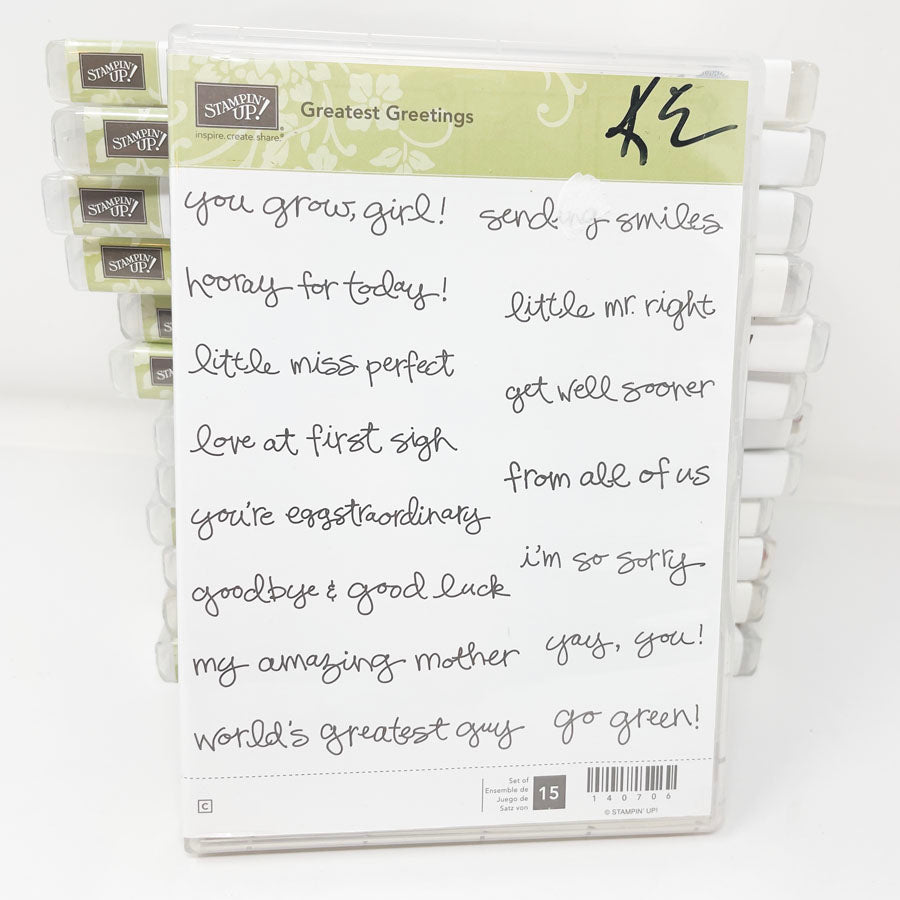 STAMPIN' UP!
STAMPIN' UP!
STAMPIN' UP!
STAMPIN' UP!
STAMPIN' UP!
inspire.create.share.
Greatest Greetings
KE
you grow, girl!
sending smiles
hooray for today!
little mr. right
little miss perfect
get well sooner
love at first sigh
from all of us
you're eggstraordinary
i'm so sorry
goodbye & good luck
yay, you!
my amazing mother
go green!
world's greatest guy
C
Set of
Ensemble de
Juego de
Satz von
15
140706
© STAMPIN' UP!